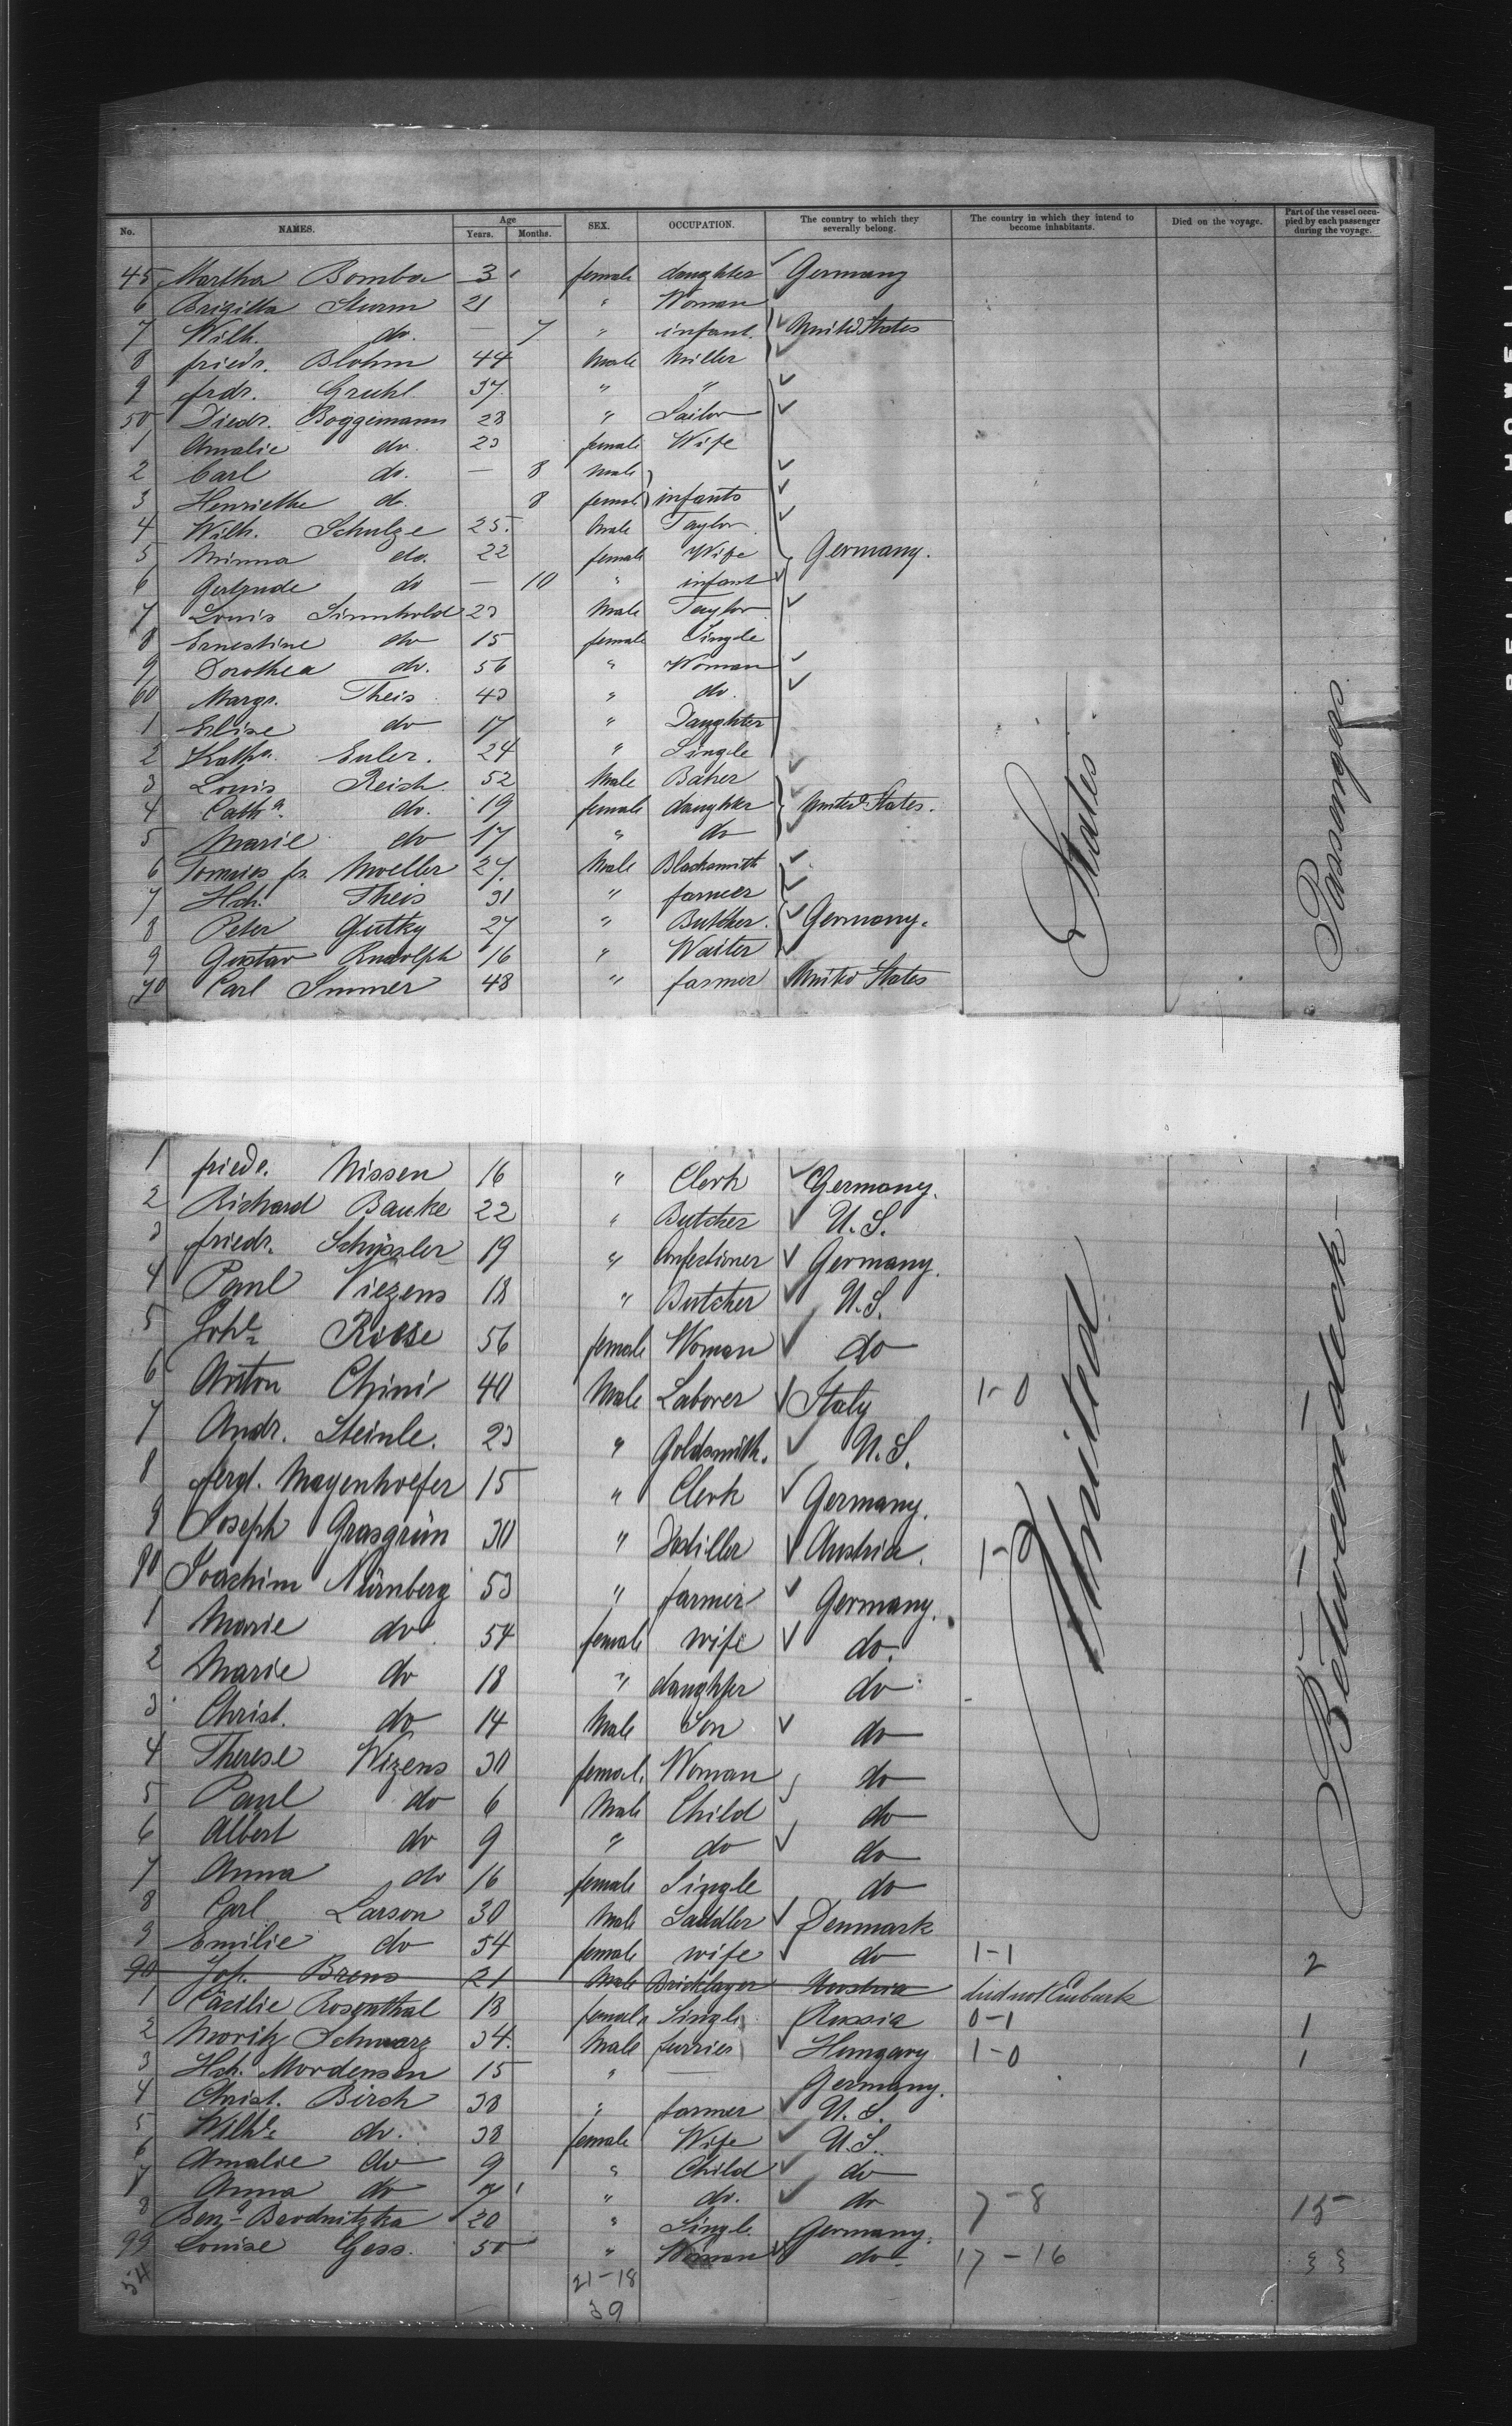 No. NAMES. Age Years. Months. SEX. OCCUPATION. The country to which they severally belong. The country in which they intend to become inhabitants. Died on the voyage. Part of the vessel occupied by each passenger during the voyage.
45 Martha Bomba 3 female daughter Germany
6 Brigitta Sturm 21 " Woman
7 Wilh. do. — 7 " infant United States
8 friedr. Blohm 44 Male Miller
9 frdr. Gruhl 37 " "
50 Diedr. Boggemann 28 " Sailor
1 Amalie do. 23 female Wife
2 Carl do. — 8 Male
3 Henriette do. 8 female infants
4 Wilh. Schulze 25. Male Taylor
5 Minna do. 22 female Wife Germany.
6 Gertrude do — 10 " infant
7 Louis Sinnhold 23 Male Taylor
8 Ernestine do 15 female Single
9 Dorothea do. 56 " Woman
60 Margr. Theis 43 " do.
1 Elise do 17 " Daughter
2 Kathr. Euler. 24 " Single
3 Louis Reich 52 Male Baker
4 Cath a. do. 19 female daughter United States.
5 Marie do 17 " do
6 Tomaies fr. Moeller 27. Male Blacksmith
7 Hch. Theis 31 " farmer
8 Peter Gutky 27 " Butcher. Germany.
9 Gustav Rudolph 16 " Waiter
70 Carl Simmer 48 " farmer United States
States
Passengers
1 friedr. Nissen 16 " Clerk Germany.
2 Richard Bauke 22 " Butcher U.S.
3 friedr. Schüssler 19 " Confectioner Germany.
4 Paul Viezens 18 " Butcher U.S.
5 Joh e. Riese 56 female Woman do
6 Anton Chini 40 Male Laborer Italy 1-0
7 Andr. Steinle. 23 " Goldsmith. U.S.
8 ferd. Mayenhoefer 15 " Clerk Germany.
9 Joseph Grasgrün 30 " Distiller Austria. 1-0
80 Joachim Nürnberg 53 " farmer Germany.
1 Marie do 54 female wife do.
2 Marie do 18 " daughter do
3 Christ. do 14 Male Son do
4 Therese Wizens 30 female. Woman do
5 Paul do 6 Male Child do
6 Albert do 9 " do do
7 Anna do 16 female Single do
8 Carl Larson 30 Male Saddler Denmark
9 Emilie do 34 female wife do 1-1 2
90 Jos. Brens 21 Male Bricklayer Austria did not Embark
1 Cäcilie Rosenthal 18 female Single Russia 0-1 1
2 Moritz Schwarz 34. Male furrier Hungary 1-0 1
3 Hch. Mordensen 15 " — Germany.
4 Christ. Birch 38 " farmer U.S.
5 Wilh e. do. 38 female Wife U.S.
6 Amalie do 9 " Child do
7 Anna do 7 " do. do 7-8 15
8 Ben a. Brodnitzka 20 " Single Germany.
99 Louise Gess. 50 " Woman do. 17-16 33
54 21-18
39
United
Betweendeck